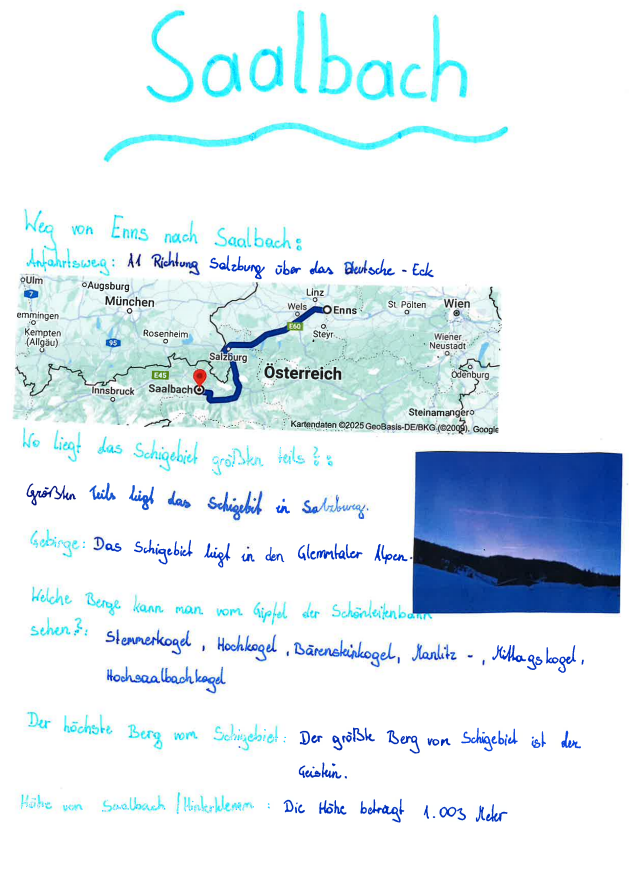 Saalbach
Weg von Enns nach Saalbach:
Anfahrtsweg: A1 Richtung Salzburg über das Deutsche - Eck
Ulm
Augsburg
7
München
Linz
Wels
Enns
St. Pölten
Wien
emmingen
Kempten
(Allgäu)
95
Rosenheim
E60
Steyr
Wiener
Neustadt
Salzburg
E45
Saalbach
Österreich
Ödenburg
Innsbruck
Steinamanger
Kartendaten ©2025 GeoBasis-DE/BKG (©2009), Google
Wo liegt das Schigebiet größten teils?:
Größten teils liegt das Schigebit in Salzburg.
Gebirge: Das Schigebiet liegt in den Glemmtaler Alpen.
Welche Berge kann man vom Gipfel der Schönleitenbahn
sehen?: Stemmerkogel, Hochkogel, Bärensteinkogel, Manlitz -, Mittagskogel,
Hochsaalbachkogel
Der höchste Berg vom Schigebiet: Der größte Berg vom Schigebiet ist der
Geistein.
Höhe von Saalbach / Hinterklemm: Die Höhe beträgt 1.003 Meter